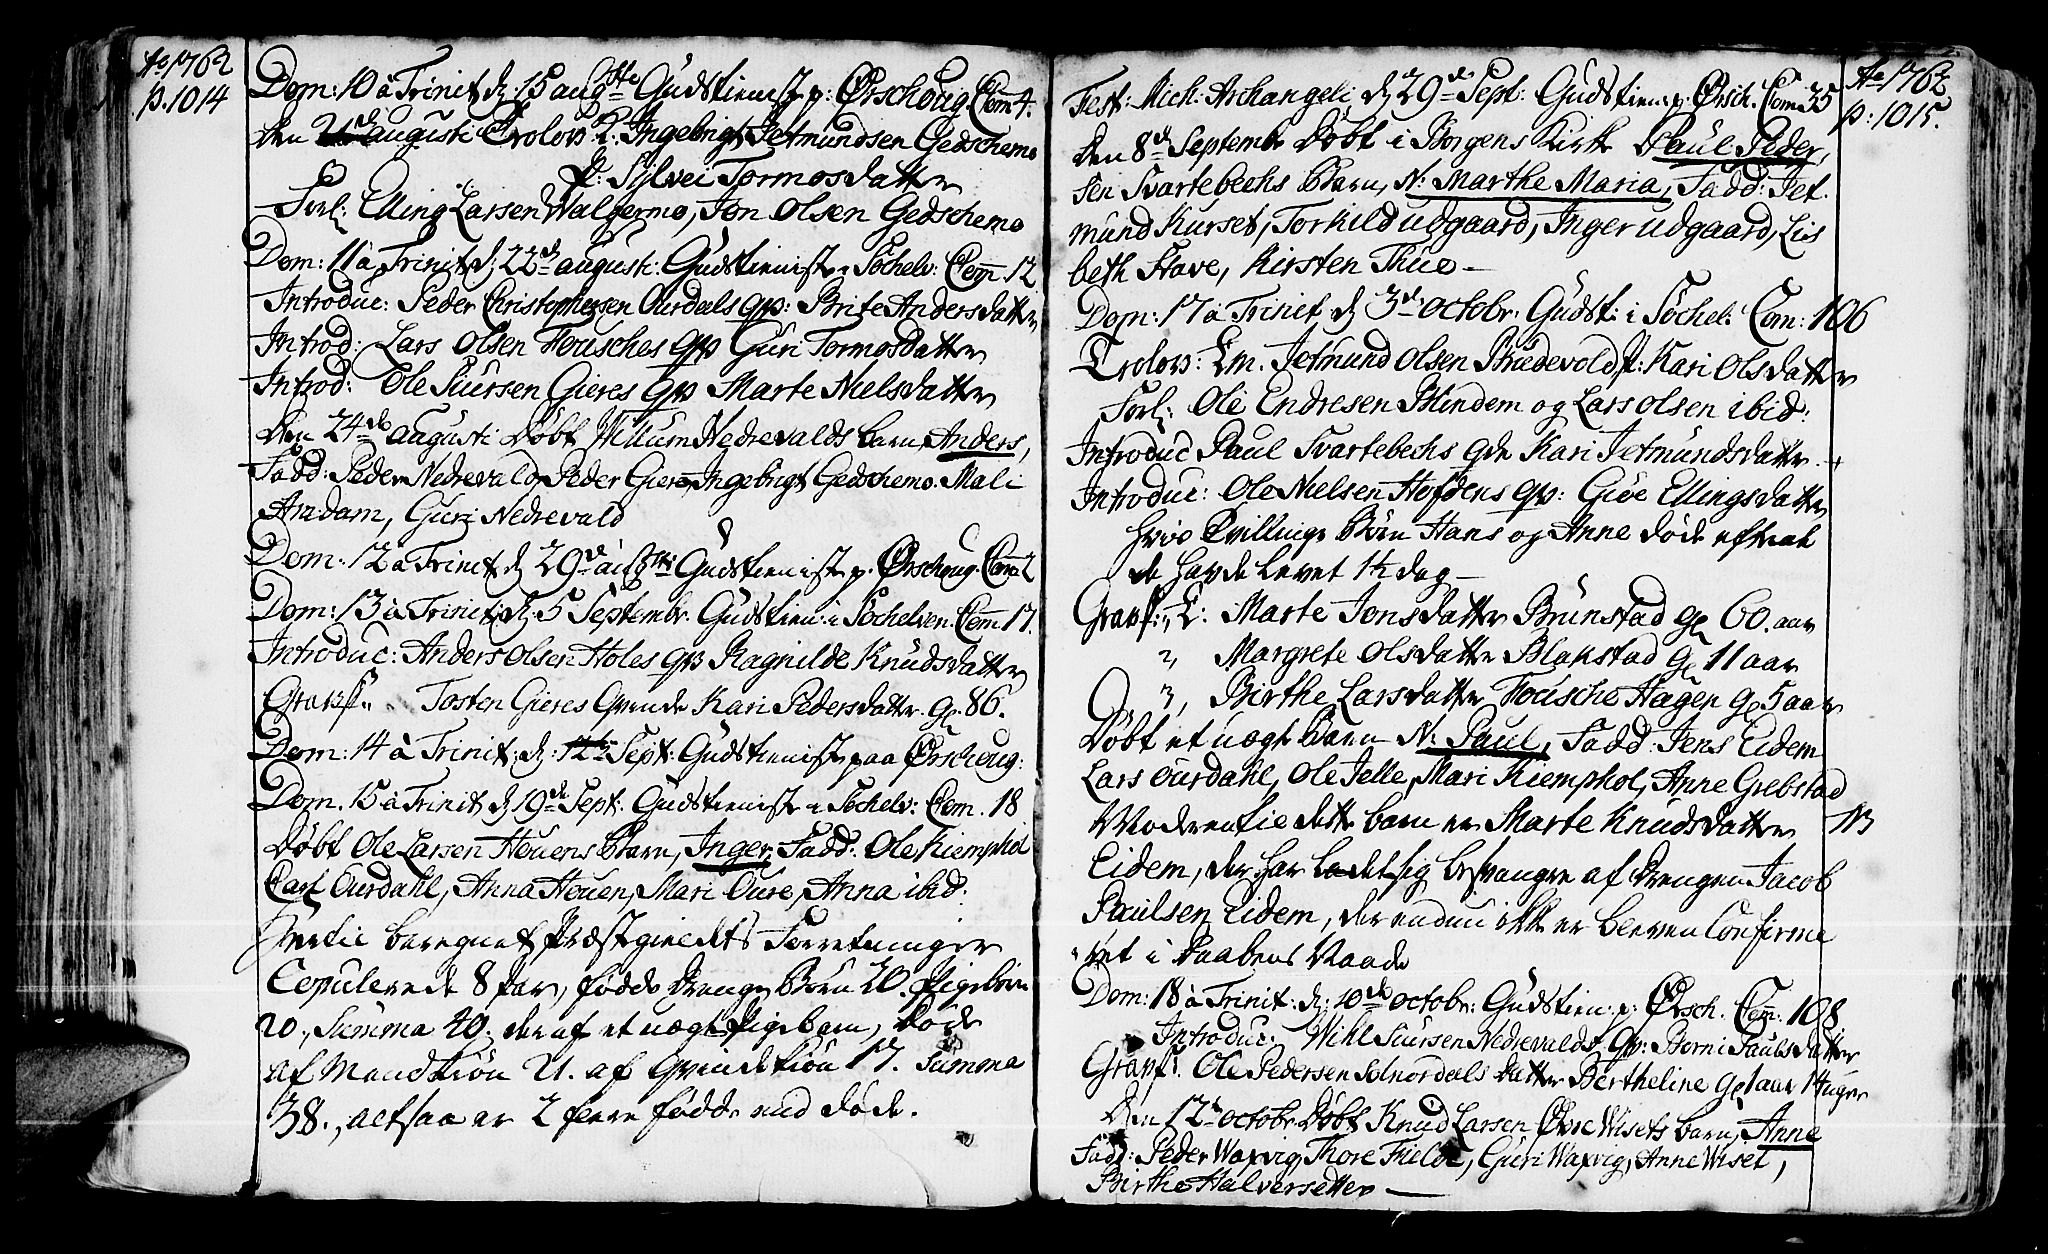 Ao 1762
p. 1014
Dom: 10 à Trinit d: 15 augste Gudstienist p: Ørschoug. Com̅ 4.
den 21de augusti Trolov: E: Ingebrigt Jetmundsen Gedschemo
P: Sylvei Tormosdatter
Forl: Elling Larsen Walgermo, Jon Olsen Gedschemo
Dom: 11 à Trinit d: 22de augusti: Gudstienist i Söchelv: Com̅ 12
Introduc: Peder Christophersen Ourdals qv: Brite Andersdatter
Introd: Lars Olsen Fousches qv Guri Tormosdatter
Introd: Ole Siursen Gieres qv Marte Nielsdatter
Den 24de augusti Döbt Willum Nedrevalds barn, Anders,
Fadd: Peder Nedrevald, Peder Giere, Ingebrigt Gedschemo. Mali
Amdam, Guri Nedrevald
Dom: 12 à Trinit d: 29de augsti Gudstienist p. Ørschoug. Com̅ 2
Dom: 13 à Trinit: d: 5 Septembr. Gudstien: i Söchelven. Com̅ 17.
Introduc: Anders Olsen Holes qv Ragnilde Knudsdatter
Gravf: Tosten Gieres Qvinde Kari Pedersdatter. Gl. 86.
Dom: 14 à Trinit: d: 12te Sept: Gudstienist paa Ørschoug:
Dom. 15 à Trinit d: 19de Sept: Gudstienist i Söchelv: Com. 18
Döbt Ole Larsen Houens Barn, Inger, Fadd: Ole Kiemphol
Carl Ourdahl, Anna Houen, Mari Oure, Anna ibid:
beregnet Præstegieldets Forretninger
Copulerede 8 Par, födde Drenge Börn 20. Pigebörn
20., Summa 40. deraf et uægte Pigebarn, Döde
af Mandkiön 21. af Qvindekiön 17. Summa
38., altsaa er 2 flere födde end döde.
Ao 1762
p: 1015.
Fest: Mich: Archangeli d 29de Sept: Gudstien: p. Ørsch. Com 35
Den 8de Septembr Döbt i Borgens Kirke Paul Peder,
sen Svartebechs Barn, N: Marthe Maria, Fadd: Jet-
mund Kurset, Torkild Udgaard, Inger Udgaard, Lis
beth Stave, Kirsten Thue —
Dom: 17 à Trinit d 3de octobr. Gudst: i Söchel: Com: 106
Trolov: Em. Jetmund Olsen Brudevold P: Kari Olsdatter
Forl: Ole Endresen Blindem og Lars Olsen ibid:
Introduc Paul Svartebechs qde Kari Jetmundsdatter.
Introduc: Ole Nielsen Hofdens qv: Giöe Ellingsdatter
hvis Tvillinge Börn Hans og Anne döde efterat
de havde Levet 1½ dag —
Gravf: 1, E: Marte Jonsdatter Brunstad gl 60. aar
2, Margrete Olsdatter Blakstad Gl 11 aar
3, Birthe Larsdatter Fousche Hagen gl 5 aar
Döbt et uægte Barn N: Paul, Fadd: Jens Eidem
Lars Ourdahl, Ole Jelle, Mari Kiemphol, Anne Grebstad
Moderen til dette barn er Marte Knudsdatter
Eidem, der har ladet sig besvangre af Drengen Jacob
Paulsen Eidem, der endnu ikke er bleven Confirme
ret i Daabens Naade
Dom: 18 à Trinit: d: 10de octobr: Gudstien: p: Ørsch. Com: 108
Introduc: Wihl Siursen Nedrevalds Qv: Berni Paulsdatter
Gravf: Ole Pedersen Solnordals datter Bertheline gl 1 aar 1 Huger
Den 12te octobr Döbt Knud Larsen Øvre Wisets barn, Anne
Fadd: Peder Waxvig, Thore Fielde, Guri Waxvig, Anne Wiset,
Birthe Halversetter —